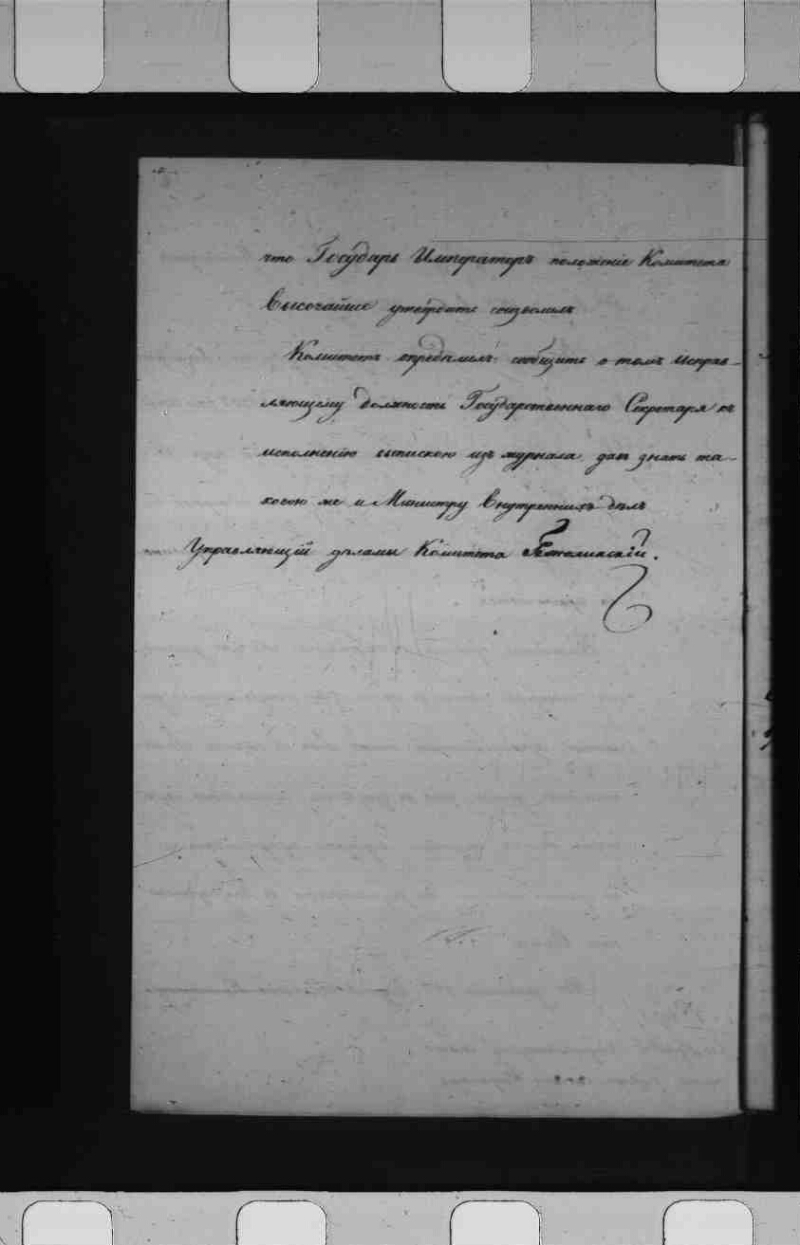 что Государь Императоръ положенiе Комитета
Высочайше утвердить соизволилъ
Комитетъ опредѣлилъ: сообщить о томъ Исправ-
ляющему должность Государственнаго Секретаря къ
исполненiю выпискою изъ журнала, давъ знать та-
ковою же и Министру Внутреннихъ дѣлъ
Управляющiй дѣлами Комитета